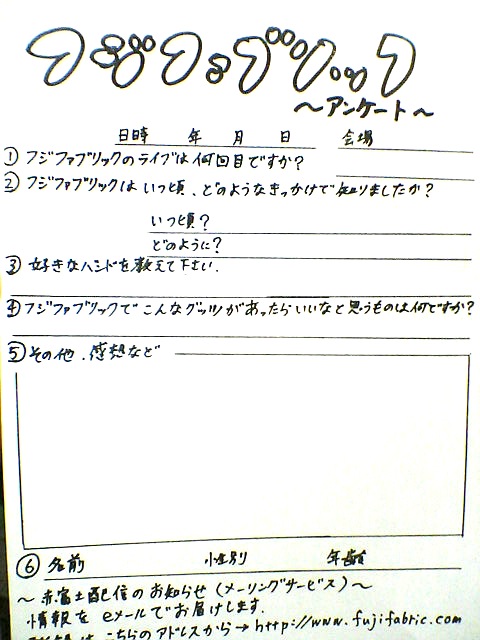 フジファブリック
～アンケート～
日時 年 月 日 会場
① フジファブリックのライブは何回目ですか?
② フジファブリックはいつ頃、どのようなきっかけで知りましたか?
いつ頃?
どのように?
③ 好きなバンドを教えて下さい.
④ フジファブリックでこんなグッツがあったらいいなと思うものは何ですか?
⑤ その他、感想など
⑥ 名前 性別 年齢
～赤富士配信のお知らせ(メーリングサービス)～
情報をeメールでお届けします.
こちらのアドレスから→http://www.fujifabric.com